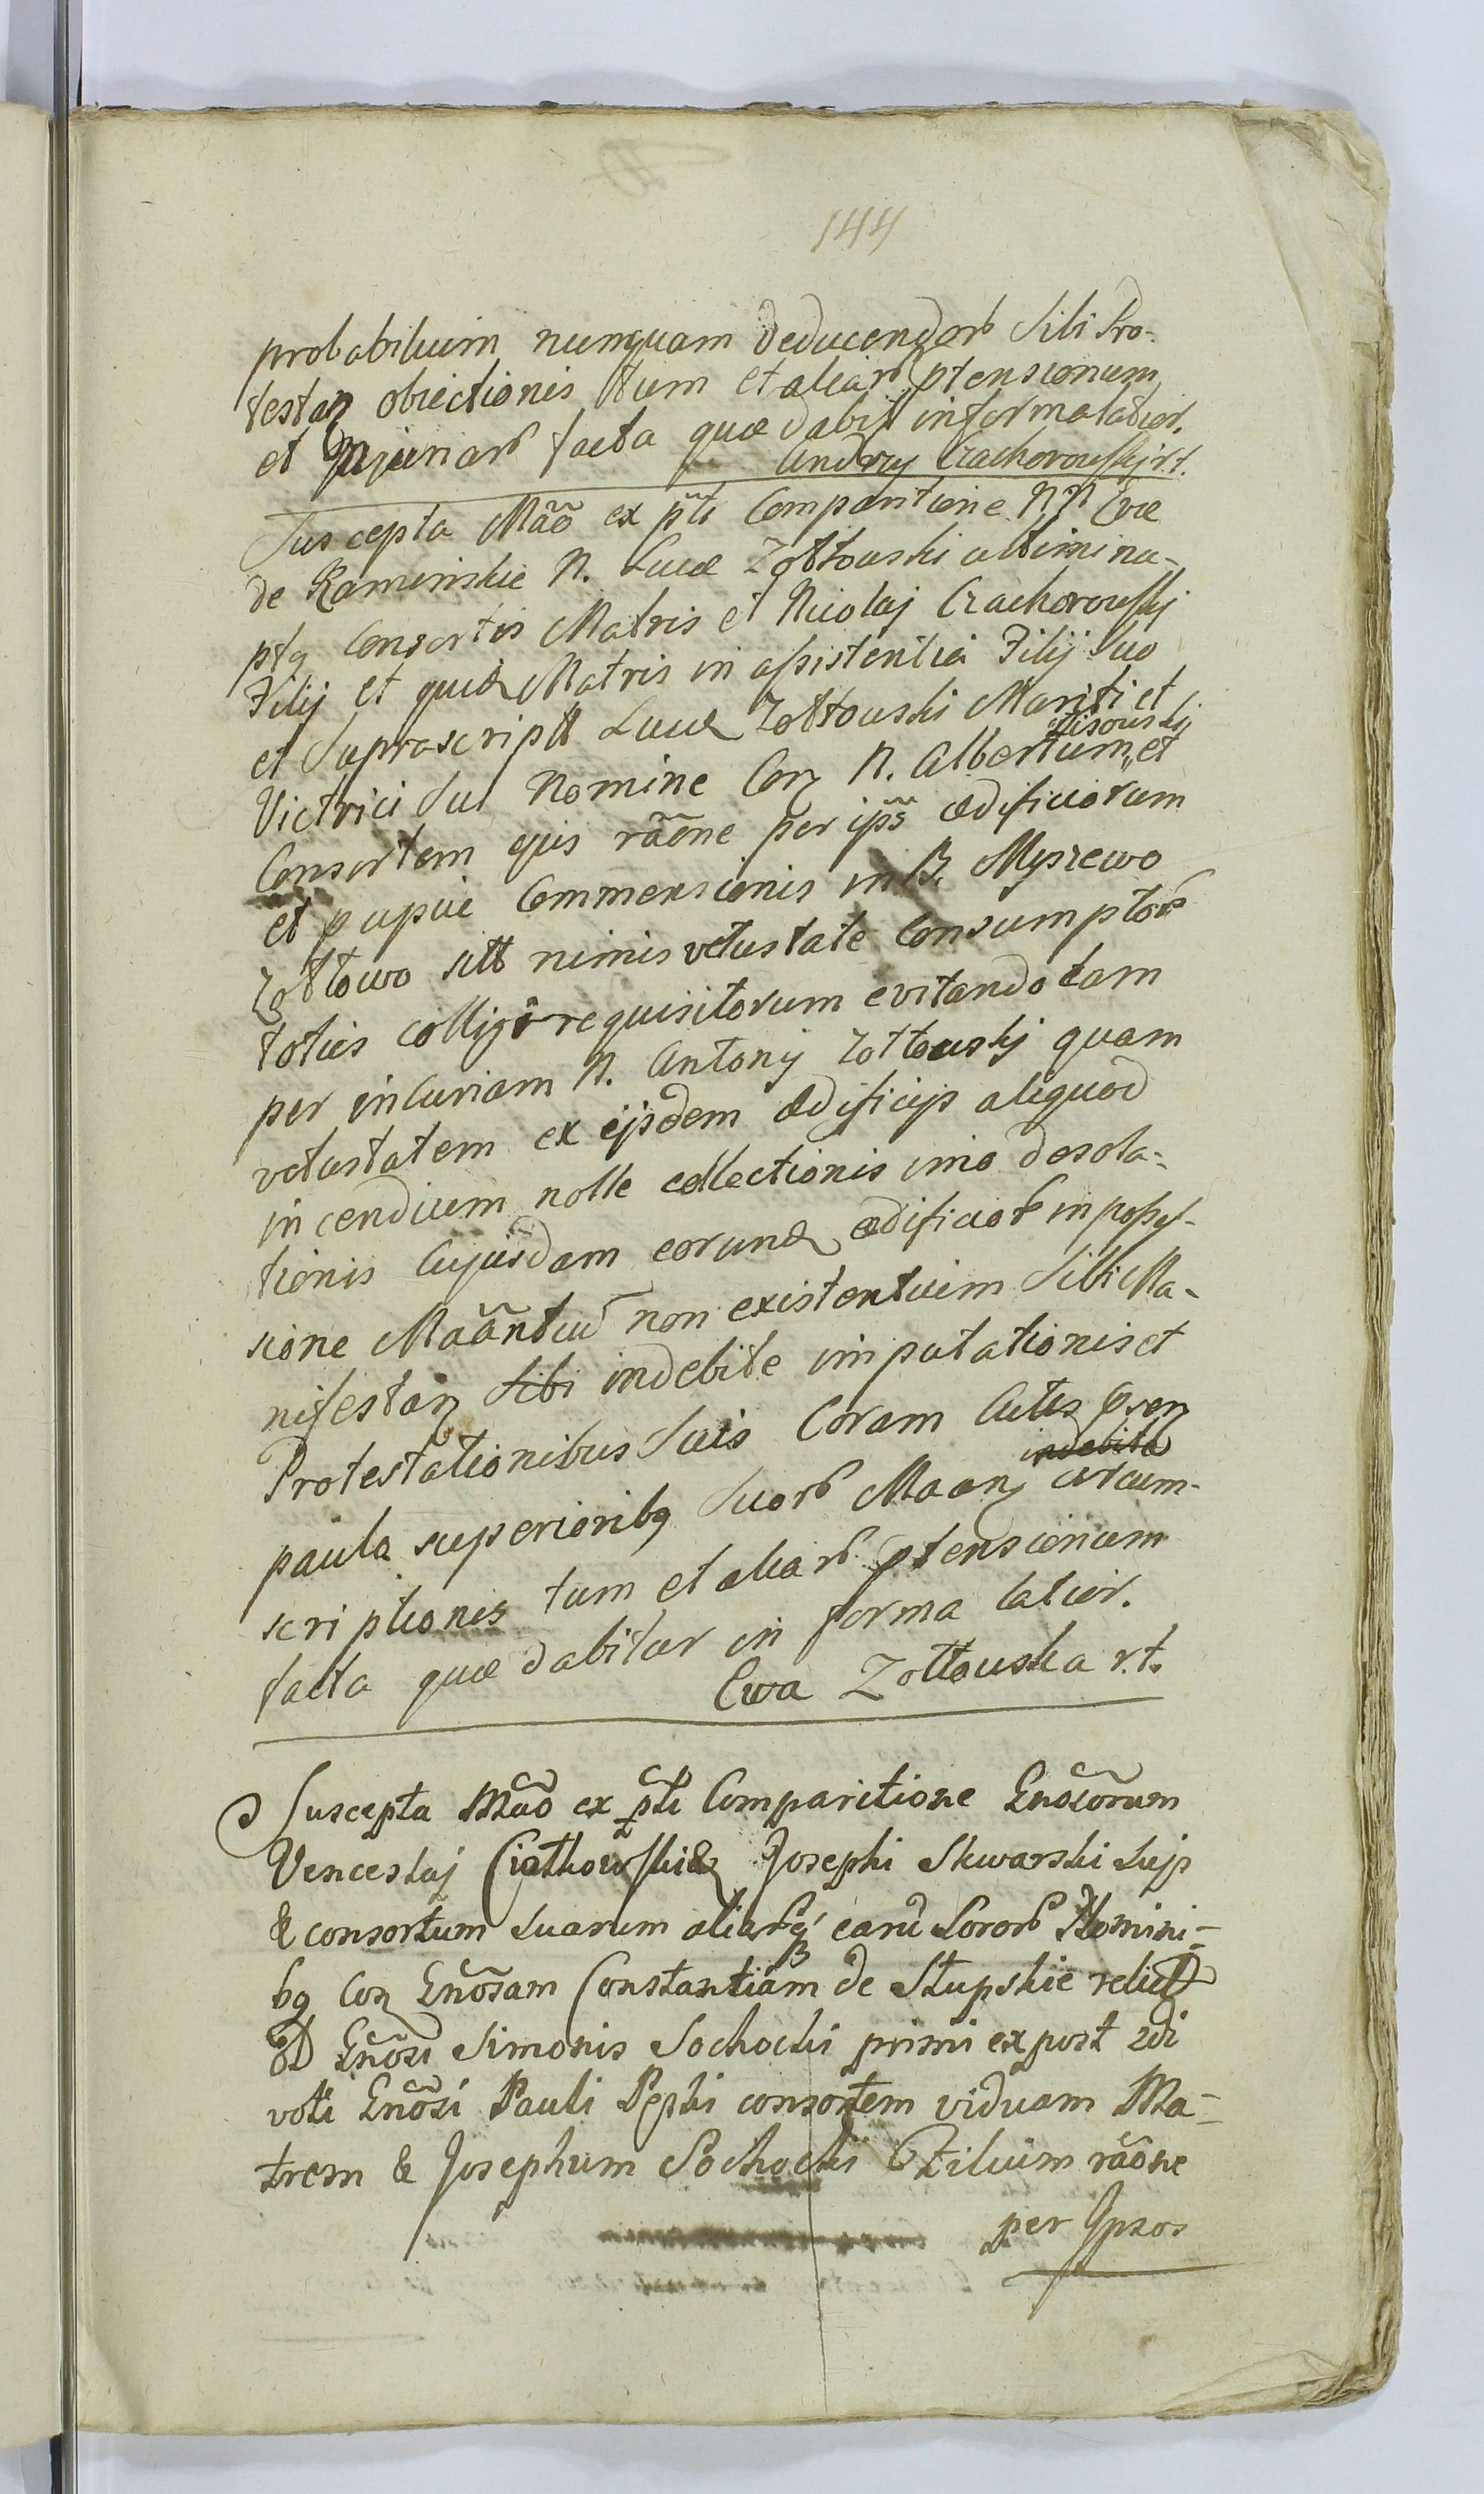 144
probabilium nunquam deducendarb Sibi Pro-
testaz obiectionis tum et aliarb ptensionum
et Injuriarb facta quæ dabit in forma latior.
Andrzy Czachorouskj r.t.
Suscepta Mão ex pti Comparitione NN Evæ
de Kaminskie N. Lucæ Zołtouski ultimi nu-
ptq Consortis Matris et Nicolaj Czachorouskj
Filij et quid Matris in assistentia Filij Suo
et Suprascripti Lucæ Zołtouski Mariti et
Victrici Sui Nomine Con N. Albertum et
Lisouskj
Consortem ejus rãone per ips ædificiorum
et papui Commensionis in B. Myszewo
Zołtowo sitt nimis vetustate Consumptorb
toties colligi requisitorum evitando tam
per incuriam N. Antonij Zołtouskj quam
vetustatem ex ijsdem ædificijs aliquod
incendium nolle collectionis imo desola-
tionis Cujusdam eorund ædificiorb in posses-
sione Mãantiu non existentium Sibi Ma-
nifestaz Sibi indebite imputationis et
Protestationibus Suis Coram Actis Pren
paulo superioribq Suorb Maan circum-
indebite
scriptionis tum et aliarb ptensionum
facta quæ dabitur in forma latior.
Ewa Zołtouska r.t.
Suscepta Mão ex pti Comparitione Gnosorum
Venceslaj Ciałkowski & Josephi Skwarski Suis
& consortum suarum aliarbq earu Sororb Nomini-
bq Con Gnosam Constantiam de Słupskie relict
olD Gnosi Simonis Sochocki primi ex post 2di
voti Gnosi Pauli Pepki consortem viduam Ma-
trem & Josephum Sochocki Filium rãone
per Ipsos